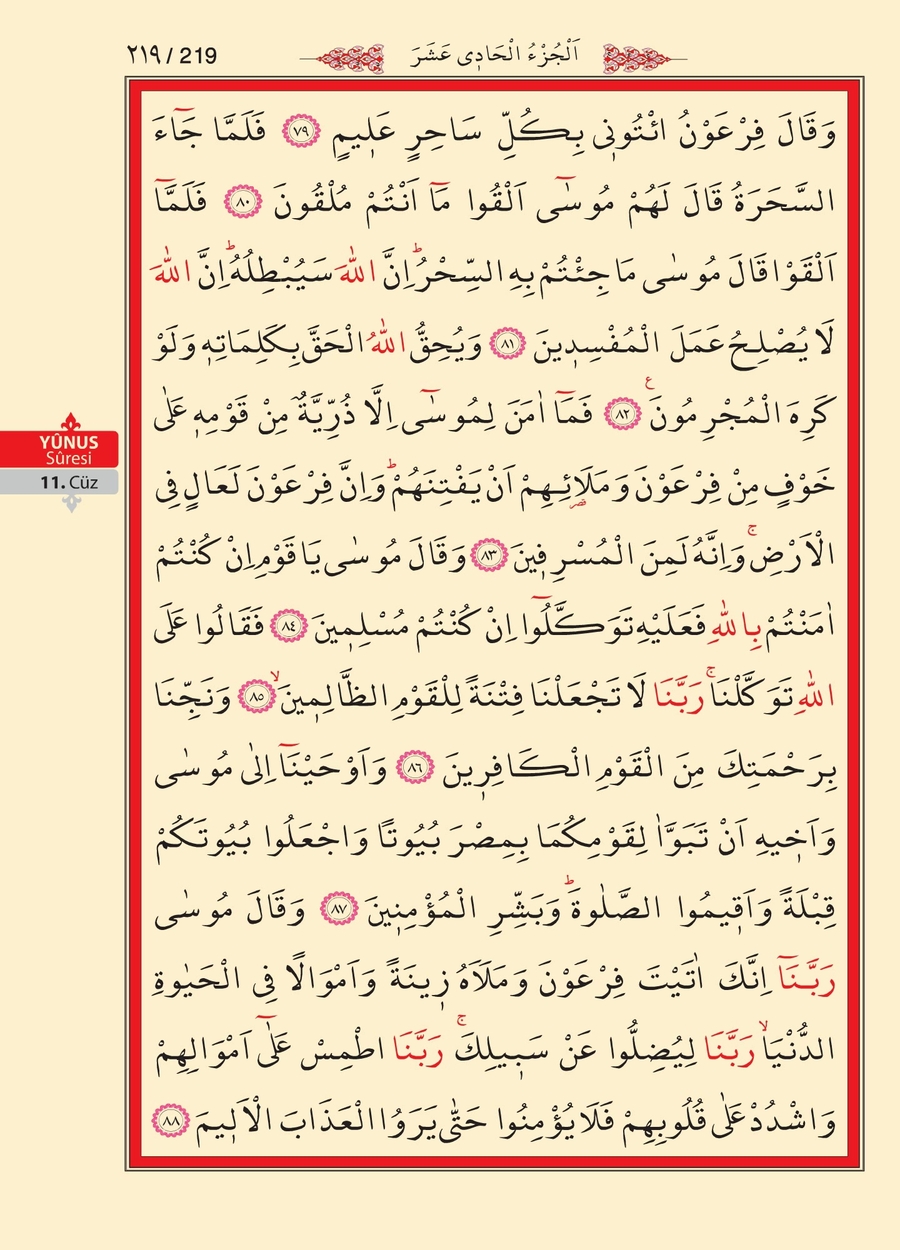 ٢١٩ / 219
اَلْجُزْءُ الْحَادٖى عَشَرَ
وَقَالَ فِرْعَوْنُ ائْتُونٖى بِكُلِّ سَاحِرٍ عَلٖيمٍ ﴿٧٩﴾ فَلَمَّا جَٓاءَ
السَّحَرَةُ قَالَ لَهُمْ مُوسٰٓى اَلْقُوا مَٓا اَنْتُمْ مُلْقُونَ ﴿٨٠﴾ فَلَمَّٓا
اَلْقَوْا قَالَ مُوسٰى مَا جِئْتُمْ بِهِ السِّحْرُؕ اِنَّ اللّٰهَ سَيُبْطِلُهُؕ اِنَّ اللّٰهَ
لَا يُصْلِحُ عَمَلَ الْمُفْسِدٖينَ ﴿٨١﴾ وَيُحِقُّ اللّٰهُ الْحَقَّ بِكَلِمَاتِهٖ وَلَوْ
كَرِهَ الْمُجْرِمُونَ ع ﴿٨٢﴾ فَمَٓا اٰمَنَ لِمُوسٰٓى اِلَّا ذُرِّيَّةٌ مِنْ قَوْمِهٖ عَلٰى
خَوْفٍ مِنْ فِرْعَوْنَ وَمَلَا۬ئِهِمْ اَنْ يَفْتِنَهُمْؕ وَاِنَّ فِرْعَوْنَ لَعَالٍ فِى
الْاَرْضِۚ وَاِنَّهُ لَمِنَ الْمُسْرِفٖينَ ﴿٨٣﴾ وَقَالَ مُوسٰى يَا قَوْمِ اِنْ كُنْتُمْ
اٰمَنْتُمْ بِاللّٰهِ فَعَلَيْهِ تَوَكَّلُٓوا اِنْ كُنْتُمْ مُسْلِمٖينَ ﴿٨٤﴾ فَقَالُوا عَلَى
اللّٰهِ تَوَكَّلْنَاۚ رَبَّنَا لَا تَجْعَلْنَا فِتْنَةً لِلْقَوْمِ الظَّالِمٖينَۙ ﴿٨٥﴾ وَنَجِّنَا
بِرَحْمَتِكَ مِنَ الْقَوْمِ الْكَافِرٖينَ ﴿٨٦﴾ وَاَوْحَيْنَٓا اِلٰى مُوسٰى
وَاَخٖيهِ اَنْ تَبَوَّاٰ لِقَوْمِكُمَا بِمِصْرَ بُيُوتًا وَاجْعَلُوا بُيُوتَكُمْ
قِبْلَةً وَاَقٖيمُوا الصَّلٰوةَؕ وَبَشِّرِ الْمُؤْمِنٖينَ ﴿٨٧﴾ وَقَالَ مُوسٰى
رَبَّنَٓا اِنَّكَ اٰتَيْتَ فِرْعَوْنَ وَمَلَاَهُ زٖينَةً وَاَمْوَالًا فِى الْحَيٰوةِ
الدُّنْيَاۙ رَبَّنَا لِيُضِلُّوا عَنْ سَبٖيلِكَۚ رَبَّنَا اطْمِسْ عَلٰٓى اَمْوَالِهِمْ
وَاشْدُدْ عَلٰى قُلُوبِهِمْ فَلَا يُؤْمِنُوا حَتّٰى يَرَوُا الْعَذَابَ الْاَلٖيمَ ﴿٨٨﴾
YÛNUS
Sûresi
11. Cüz